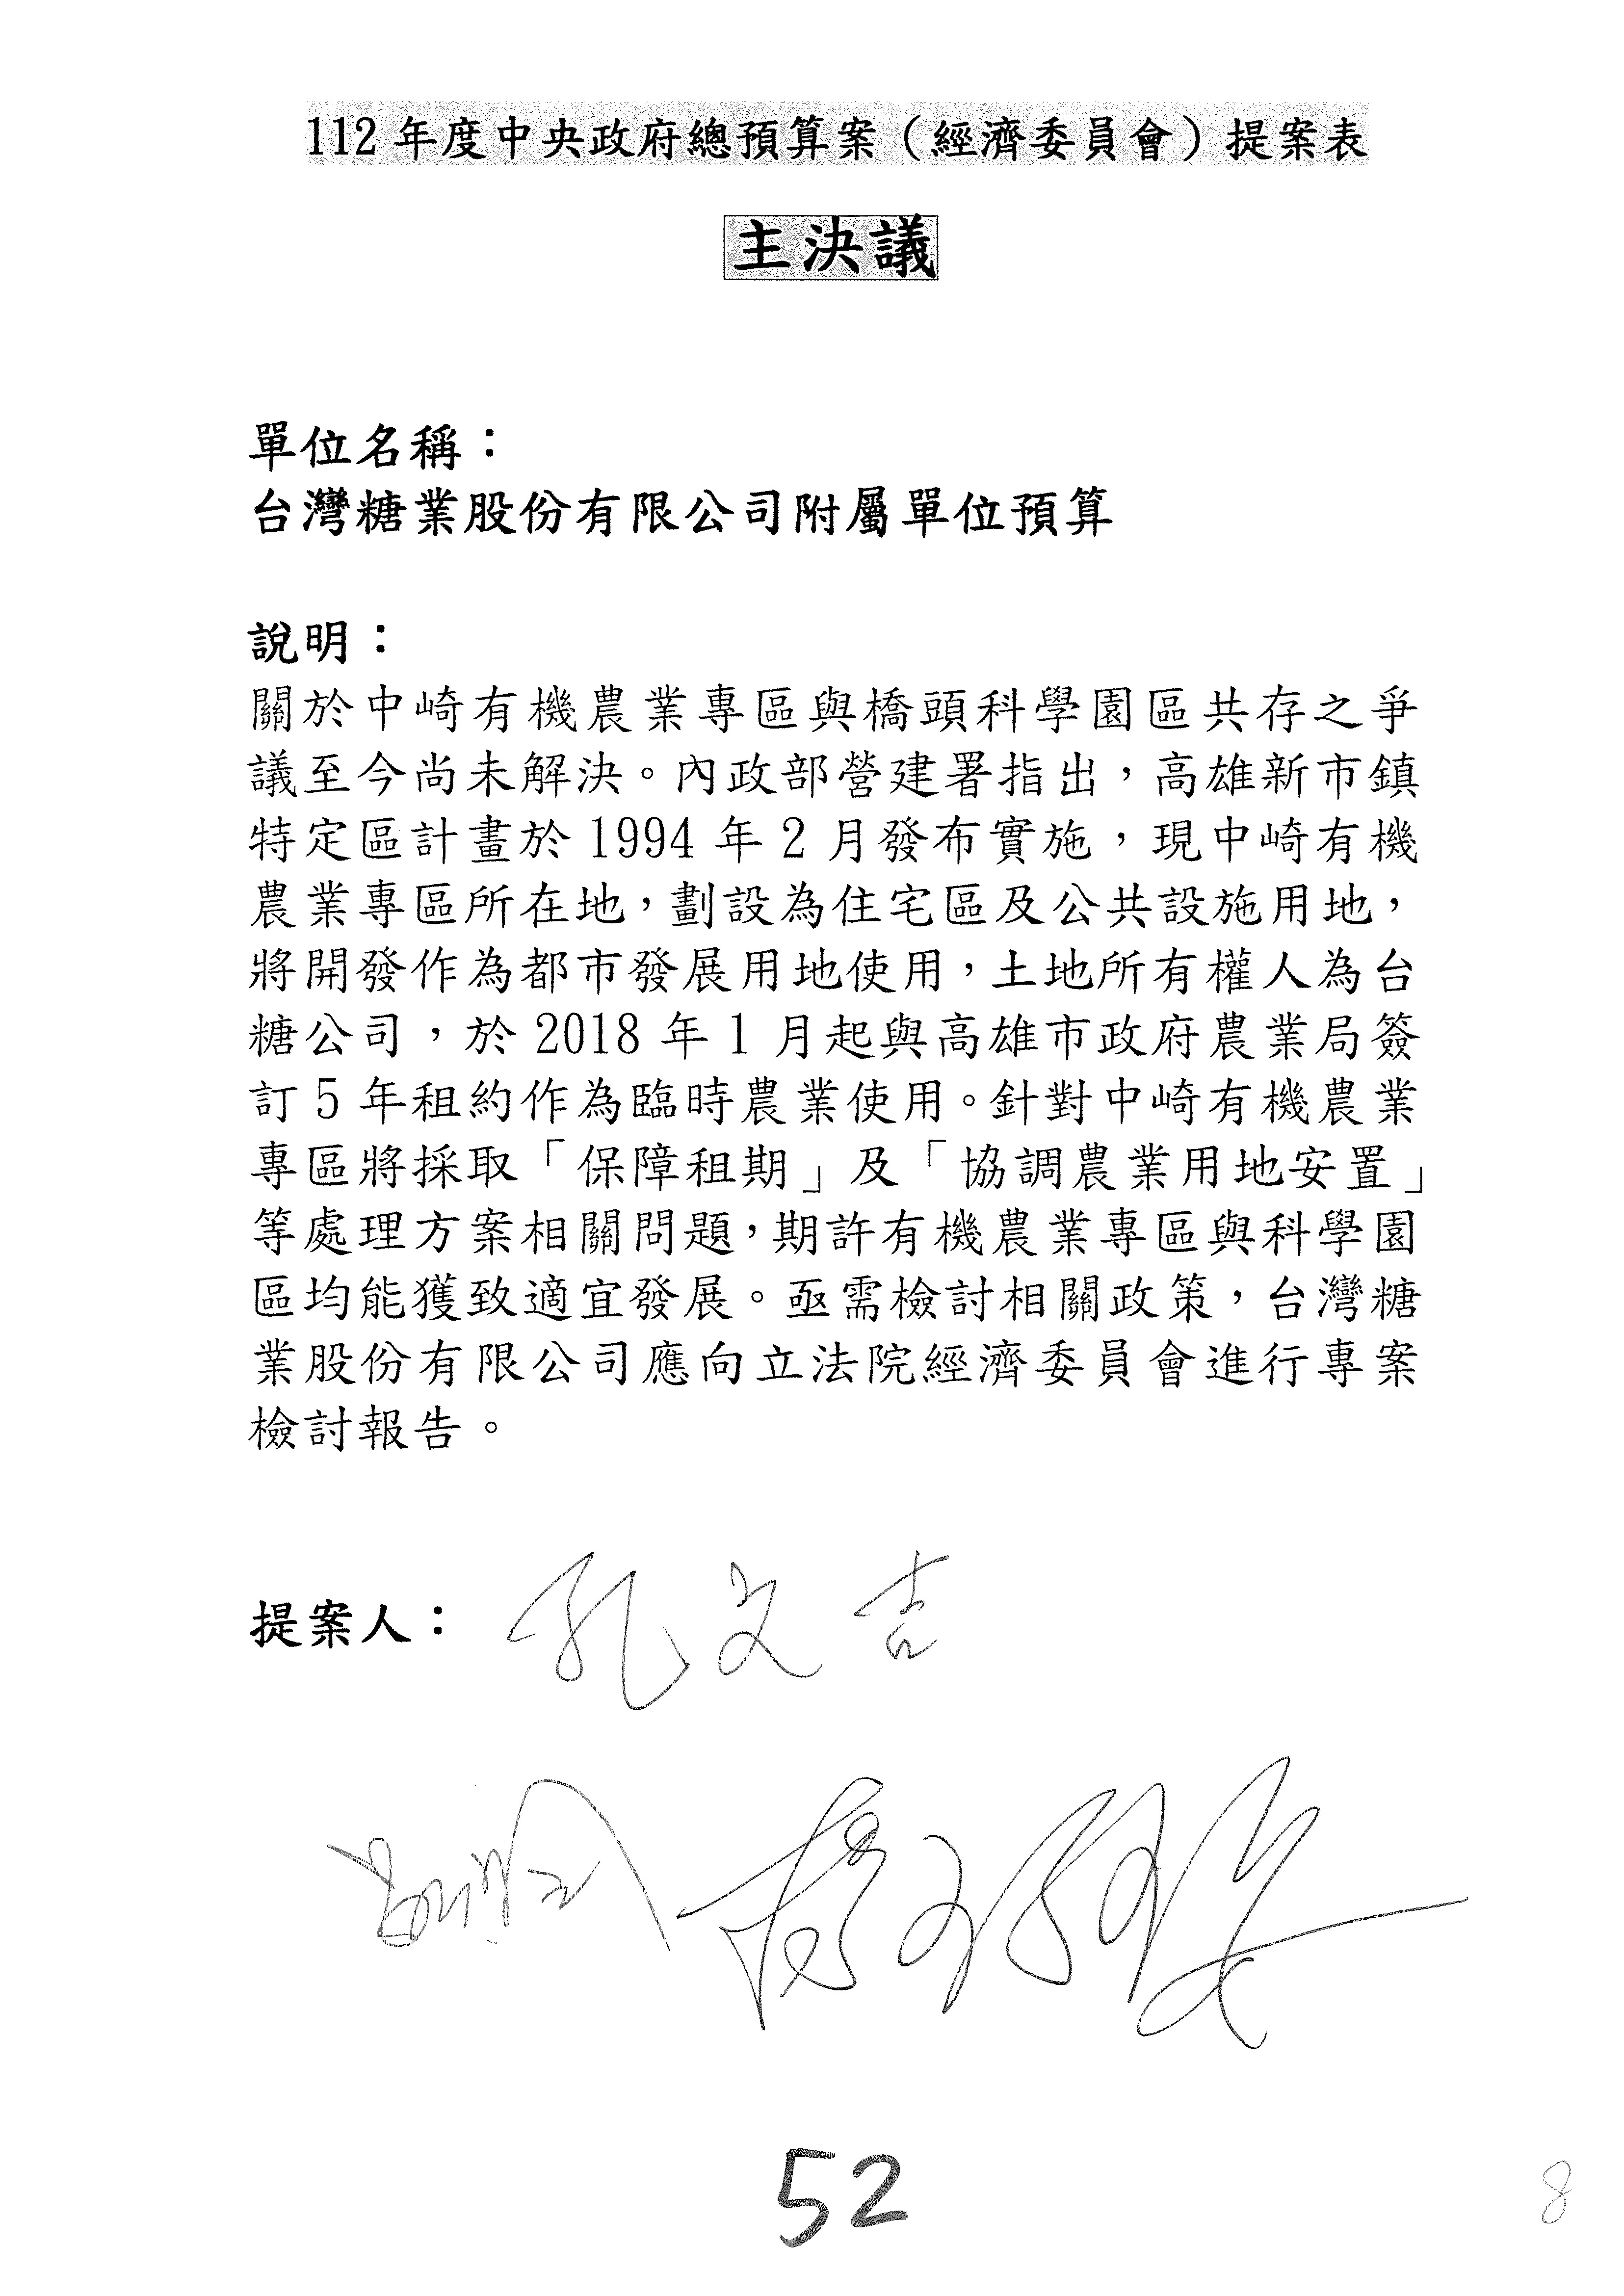 112年度中央政府總預算案（經濟委員會）提案表
主決議
單位名稱：
台灣糖業股份有限公司附屬單位預算
說明：
關於中崎有機農業專區與橋頭科學園區共存之爭
議至今尚未解決。內政部營建署指出，高雄新市鎮
特定區計畫於 1994 年 2 月發布實施，現中崎有機
農業專區所在地，劃設為住宅區及公共設施用地，
將開發作為都市發展用地使用，土地所有權人為台
糖公司，於 2018 年 1 月起與高雄市政府農業局簽
訂 5 年租約作為臨時農業使用。針對中崎有機農業
專區將採取「保障租期」及「協調農業用地安置」
等處理方案相關問題，期許有機農業專區與科學園
區均能獲致適宜發展。亟需檢討相關政策，台灣糖
業股份有限公司應向立法院經濟委員會進行專案
檢討報告。
提案人：孔文吉
52
8